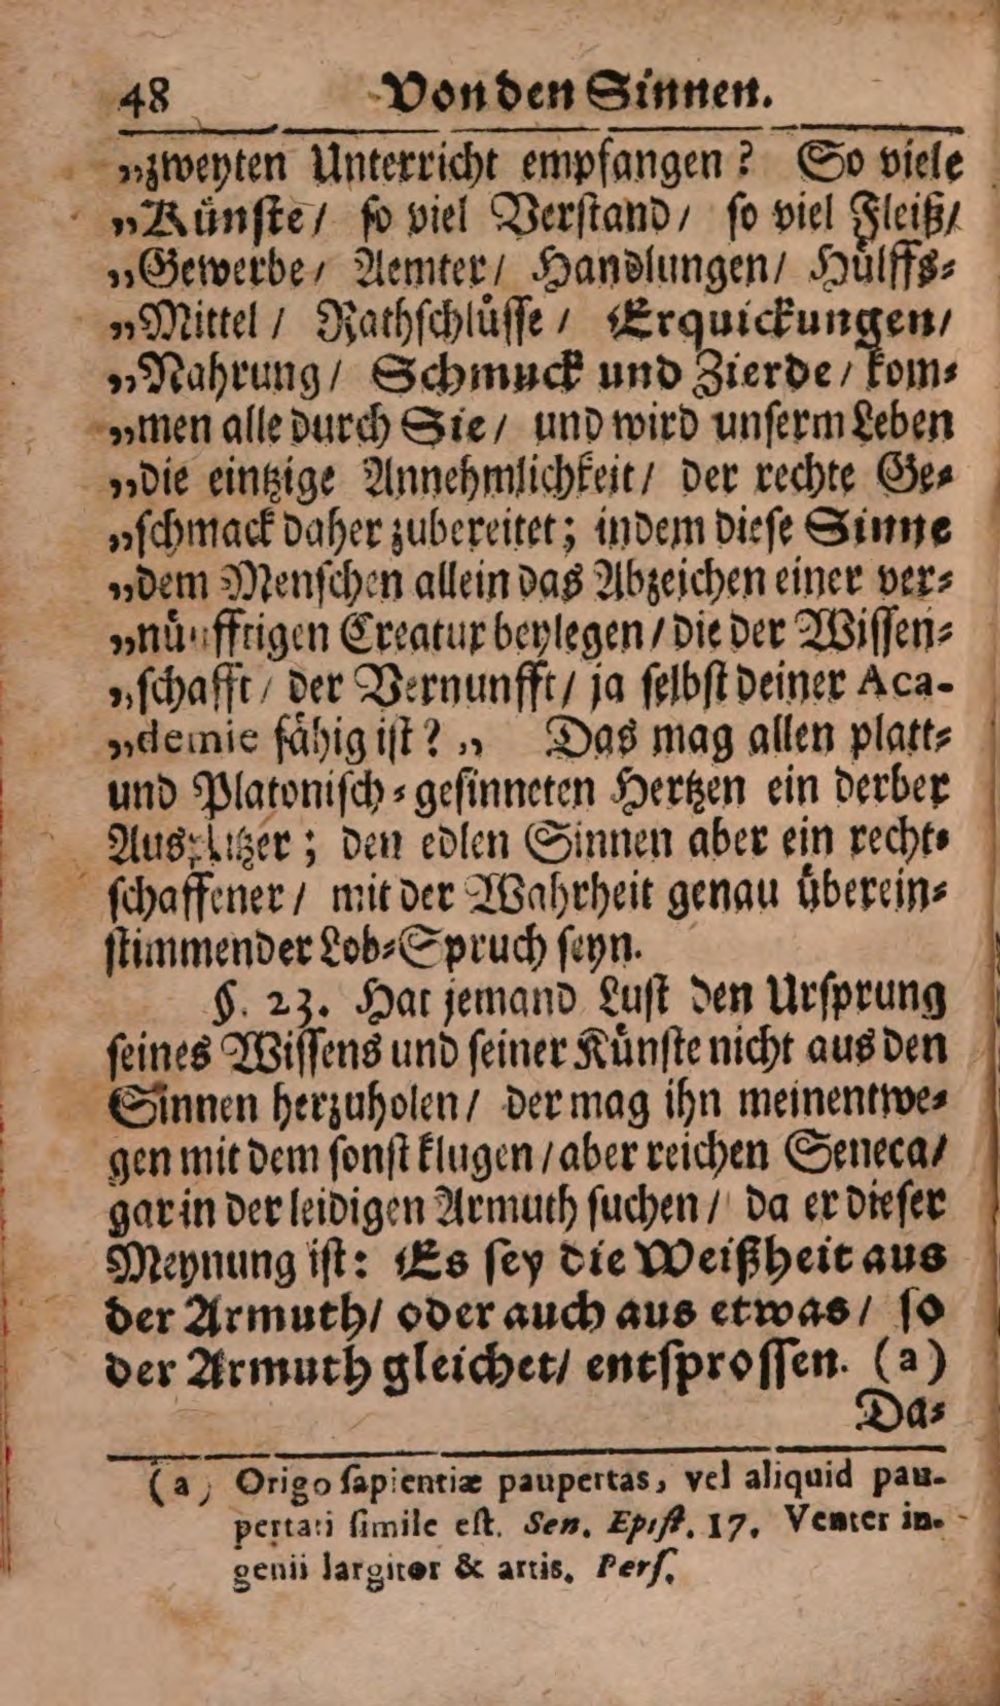 48 Von den Sinnen.
„zweyten Unterricht empfangen? So viele
„Künste/ so viel Verstand/ so viel Fleiß/
„Gewerbe/ Aemter/ Handlungen/ Hülffs-
„Mittel/ Rathschlüsse/ Erquickungen/
„Nahrung/ Schmuck und Zierde/ kom-
„men alle durch Sie/ und wird unserm Leben
„die eintzige Annehmlichkeit/ der rechte Ge-
„schmack daher zubereitet; indem diese Sinne
„dem Menschen allein das Abzeichen einer ver-
„nünfftigen Creatur beylegen/ die der Wissen-
„schafft/ der Vernunfft/ ja selbst deiner Aca-
„demie fähig ist?„ Das mag allen platt-
und Platonisch-gesinneten Hertzen ein derber
Ausputzer; den edlen Sinnen aber ein recht-
schaffener/ mit der Wahrheit genau überein-
stimmender Lob-Spruch seyn.
§. 23. Hat jemand Lust den Ursprung
seines Wissens und seiner Künste nicht aus den
Sinnen herzuholen/ der mag ihn meinentwe-
gen mit dem sonst klugen/ aber reichen Seneca/
gar in der leidigen Armuth suchen/ da er dieser
Meynung ist: Es sey die Weißheit aus
der Armuth/ oder auch aus etwas/ so
der Armuth gleichet/ entsprossen. (a)
Da-
(a) Origo sapientiæ paupertas, vel aliquid pau-
pertati simile est. Sen. Epist. 17. Venter in-
genii largitor & artis. Pers.